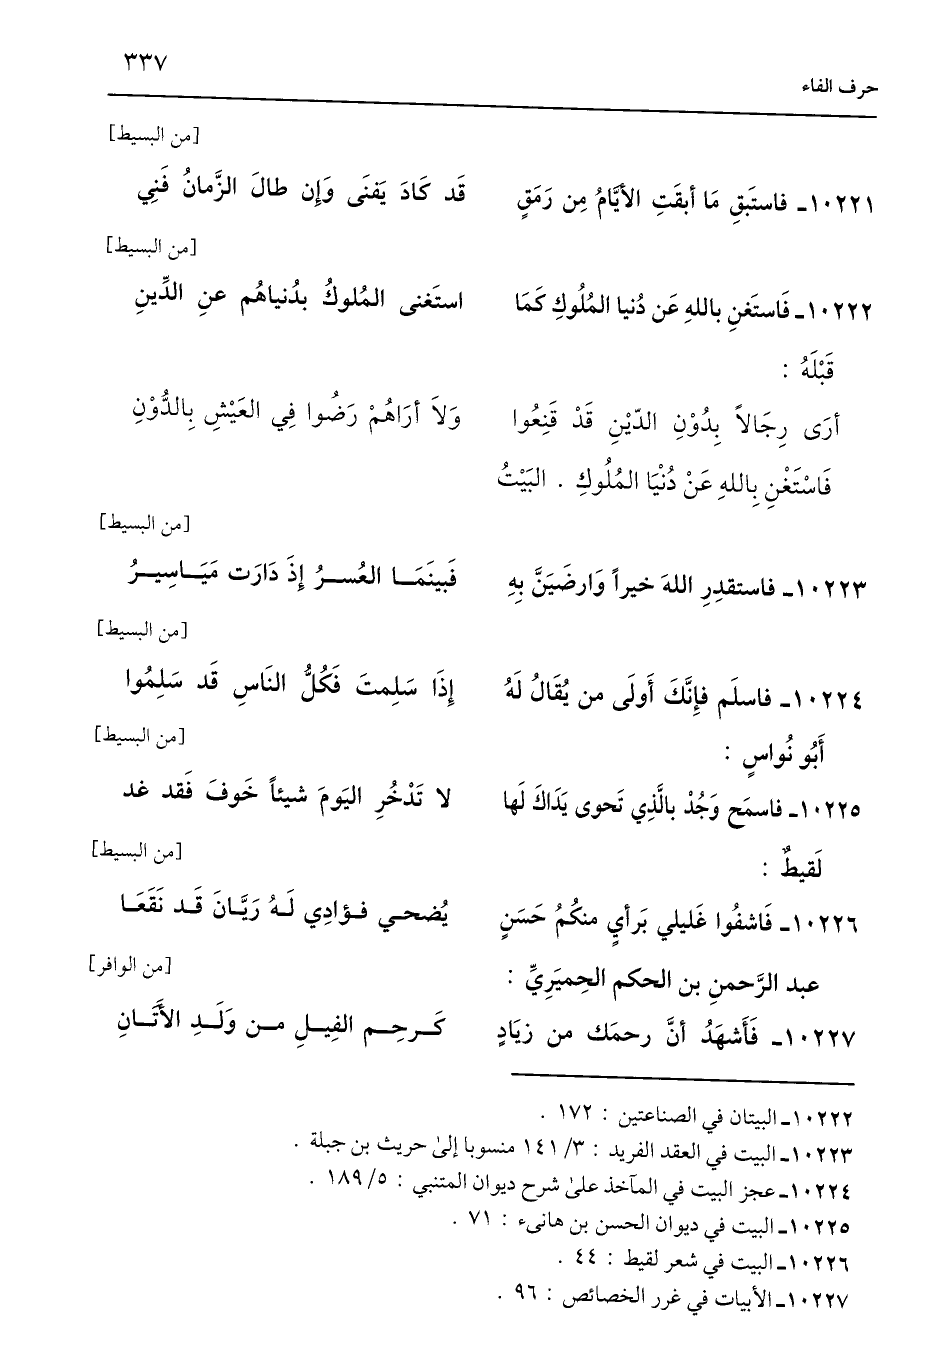 ٣٣٧
حرف الفاء
[من البسيط]
١٠٢٢١ـ فاستَبقِ مَا أبقَتِ الأيَّامُ مِن رَمَقٍ قَد كَادَ يَفنَى وَإن طالَ الزَّمانُ فَنِي
[من البسيط]
١٠٢٢٢ـ فَاستَغنِ باللهِ عَن دُنيا المُلُوكِ كَمَا استَغنى المُلوكُ بدُنياهُم عنِ الدِّينِ
قَبْلَهُ :
أرَى رِجَالاً بِدُوْنِ الدّيْنِ قَدْ قَنِعُوا وَلاَ أرَاهُمْ رَضُوا فِي العَيْشِ بِالدُّوْنِ
فَاسْتَغْنِ بِاللهِ عَنْ دُنْيَا المُلُوكِ . البَيْتُ
[من البسيط]
١٠٢٢٣ـ فاستقدِرِ اللهَ خيراً وَارضَيَنَّ بِهِ فَبينَمَـا العُسـرُ إذَ دَارَت مَيَـاسِيـرُ
[من البسيط]
١٠٢٢٤ـ فاسلَم فإِنَّكَ أَولَى من يُقَالُ لَهُ إذَا سَلِمتَ فَكُلُّ النَاسِ قَد سَلِمُوا
أَبُو نُواسٍ :
[من البسيط]
١٠٢٢٥ـ فاسمَح وَجُدْ بالَّذِي تَحوى يَدَاكَ لَها لا تَدْخُرِ اليَومَ شيئاً خَوفَ فَقد غد
لَقيطٌ :
[من البسيط]
١٠٢٢٦ـ فَاشفُوا غَليلي بَرأيٍ منكُمُ حَسَنٍ يُضحـي فـؤادِي لَـهُ رَيَّـانَ قَـد نَقَعَـا
عبد الرَّحمنِ بن الحكم الحِميَرِيِّ :
[من الوافر]
١٠٢٢٧ـ فَأَشهَدُ أنَّ رحمَك من زيَادٍ كَـرحِـم الفِيـلِ مـن وَلَـدِ الأَتَـانِ
١٠٢٢٢ـ البيتان في الصناعتين : ١٧٢ .
١٠٢٢٣ـ البيت في العقد الفريد : ٣/ ١٤١ منسوبا إلىٰ حريث بن جبلة .
١٠٢٢٤ـ عجز البيت في المآخذ علىٰ شرح ديوان المتنبي : ٥/ ١٨٩ .
١٠٢٢٥ـ البيت في ديوان الحسن بن هانىء : ٧١ .
١٠٢٢٦ـ البيت في شعر لقيط : ٤٤ .
١٠٢٢٧ـ الأبيات في غرر الخصائص : ٩٦ .